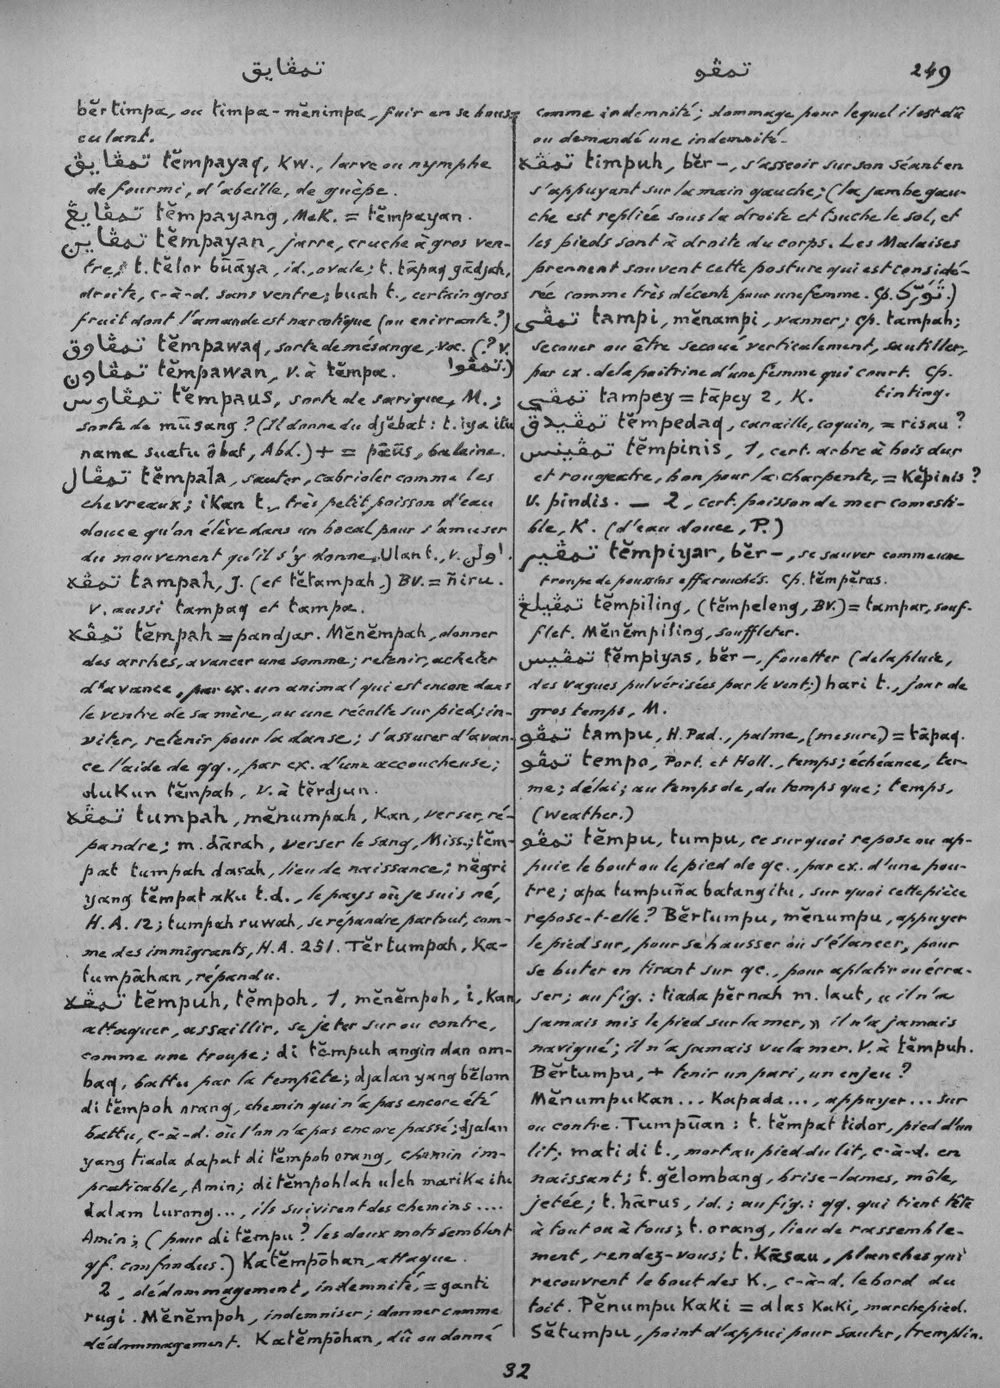 تمڤايق
تمڤو
249
bĕrtimpa, ou timpa-mĕnimpa, fuir en se bous-
culant.
تمڤايق tĕmpayaq, Kw., larve ou nymphe
de fourmi, d'abeille, de guêpe.
تمڤايڠ tĕmpayang, MaK. = tĕmpayan.
تمڤاين tĕmpayan, jarre, cruche à gros ven-
tre; t. tĕlor būāya, id., ovale; t. tāpaq gādjah,
droite, c-à-d. sans ventre; buah t., certain gros
fruit dont l'amande est narcotique (ou enivrante?)
تمڤاوق tĕmpawaq, sorte de mésange, voc. (? v.
تمڤاون tĕmpawan, v. à tĕmpa. تمڤوا.)
تمڤاوس tĕmpaus, sorte de sarigue, M.;
sorte de mūsang? (Il donne du djĕbat: t. iya itu
nama suatu ôbat, Abd.) + = pāūs, baleine.
تمڤال tĕmpala, sauter, cabrioler comme les
chevreaux; iKan t., très petit poisson d'eau
douce qu'on élève dans un bocal pour s'amuser
du mouvement qu'il s'y donne. Ulant., v. اولن.
تمڤه tampah, J. (et tĕtampah.) BV. = ñiru.
v. aussi tampaq et tampa.
تمڤه tĕmpah = pandjar. Mĕnĕmpah, donner
des arrhes, avancer une somme; retenir, acheter
d'avance, par ex. un animal qui est encore dans
le ventre de sa mère, ou une récolte sur pied; in-
viter, retenir pour la danse; s'assurer d'avan-
ce l'aide de qq., par ex. d'une accoucheuse;
duKun tĕmpah, v. à tĕrdjun.
تمڤه tumpah, mĕnumpah, Kan, verser, ré-
pandre; m. dārah, verser le sang, Miss.; tĕm-
pat tumpah darah, lieu de naissance; nĕgri
yang tĕmpat aKu t.d., le pays où je suis né,
H.A. 12; tumpah ruwah, se répandre partout, com-
me des immigrants, H.A. 251. Tĕrtumpah, Ka-
tumpāhan, répandu.
تمڤه tĕmpuh, tĕmpoh, 1, mĕnĕmpoh, i, Kan,
attaquer, assaillir, se jeter sur ou contre,
comme une troupe; di tĕmpuh angin dan om-
baq, battu par la tempête; djalan yang bĕlom
di tĕmpoh orang, chemin qui n'a pas encore été
battu, c-à-d. où l'on n'a pas encore passé; djalan
yang tiada dapat di tĕmpoh orang, chemin im-
praticable, Amin; di tĕmpohlah uleh marika itu
dalam lurong..., ils suivirent des chemins....
Amin; (pour di tĕmpu? les deux mots semblent
qf. confondus.) Katĕmpōhan, attaque.
2, dédommagement, indemnité, = ganti
rugi. Mĕnĕmpoh, indemniser; donner comme
dédommagement. Katĕmpōhan, dû ou donné
comme indemnité; dommage pour lequel il est dû
ou demandé une indemnité.
تمڤه timpuh, bĕr-, s'asseoir sur son séant en
s'appuyant sur la main gauche; (la jambe gau-
che est repliée sous la droite et touche le sol, et
les pieds sont à droite du corps. Les Malaises
prennent souvent cette posture qui est considé-
rée comme très décente pour une femme. Cp. تَوَرُّكْ.)
تمڤي tampi, mĕnampi, vanner; cp. tampah;
secouer ou être secoué verticalement, sautiller,
par ex. de la poitrine d'une femme qui court. Cp.
تمڤي tampey = tāpey 2, K. tinting.
تمڤيدق tĕmpedaq, canaille, coquin, = risau?
تمڤينس tĕmpinis, 1, cert. arbre à bois dur
et rougeatre, bon pour la charpente, = Kĕpinis?
v. pindis. — 2, cert. poisson de mer comesti-
ble, K. (d'eau douce, P.)
تمڤير tĕmpiyar, bĕr-, se sauver comme une
troupe de poussins effarouchés. Cp. tĕmpĕras.
تمڤيلڠ tĕmpiling, (tĕmpeleng, BV.) = tampar, souf-
flet. Mĕnĕmpiling, souffleter.
تمڤيس tĕmpiyas, bĕr-, fouetter (de la pluie,
des vagues pulvérisées par le vent;) hari t., jour de
gros temps, M.
تمڤو tampu, H. Pad., palme, (mesure,) = tāpaq.
تمڤو tempo, Port. et Holl., temps; échéance, ter-
me; délai; au temps de, du temps que; temps,
(weather.)
تمڤو tĕmpu, tumpu, ce sur quoi repose ou ap-
puie le bout ou le pied de qc., par ex. d'une pou-
tre; apa tumpuña batang itu, sur quoi cette pièce
repose-t-elle? Bĕrtumpu, mĕnumpu, appuyer
le pied sur, pour se hausser ou s'élancer, pour
se buter en tirant sur qc., pour aplatir ou écra-
ser; au fig.: tiada pĕrnah m. laut, « il n'a
jamais mis le pied sur la mer, » il n'a jamais
navigué; il n'a jamais vu la mer. V. à tĕmpuh.
Bĕrtumpu, + tenir un pari, un enjeu?
MĕnumpuKan... Kapada..., appuyer... sur
ou contre. Tumpūan: t. tĕmpat tidor, pied d'un
lit; mati di t., mort au pied du lit, c-à-d. en
naissant; t. gĕlombang, brise-lames, môle,
jetée; t. hārus, id.; au fig.: qq. qui tient tête
à tout ou à tous; t. orang, lieu de rassemble-
ment, rendez-vous; t. Kāsau, planches qui
recouvrent le bout des K., c-à-d. le bord du
toit. Pĕnumpu KaKi = alas KaKi, marchepied.
Sĕtumpu, point d'appui pour sauter, tremplin.
32